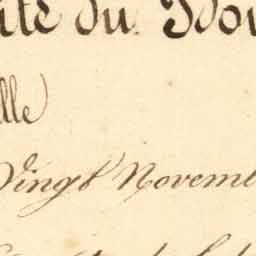 ité du Bou
lle
Vingt Novemb